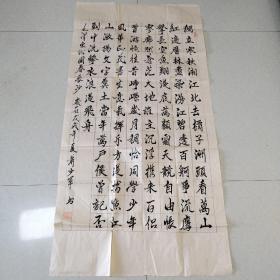 獨立寒秋湘江北去橘子洲頭看萬山
紅遍層林盡染漫江碧透百舸爭流鷹
擊長空魚翔淺底萬類霜天競自由悵
寥廓問蒼茫大地誰主沉浮携来百侣
曾游憶往昔崢嶸歲月稠恰同學少年
風華正茂書生意氣揮斥方遒指點江
山激揚文字糞土當年万户侯曾記否
到中流擊水浪遏飛舟
毛澤東沁園春長沙 歲在戊戌年夏 書